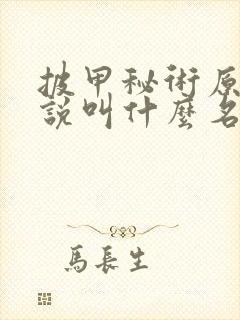 披甲秘術原
說叫什麼名
馬長生